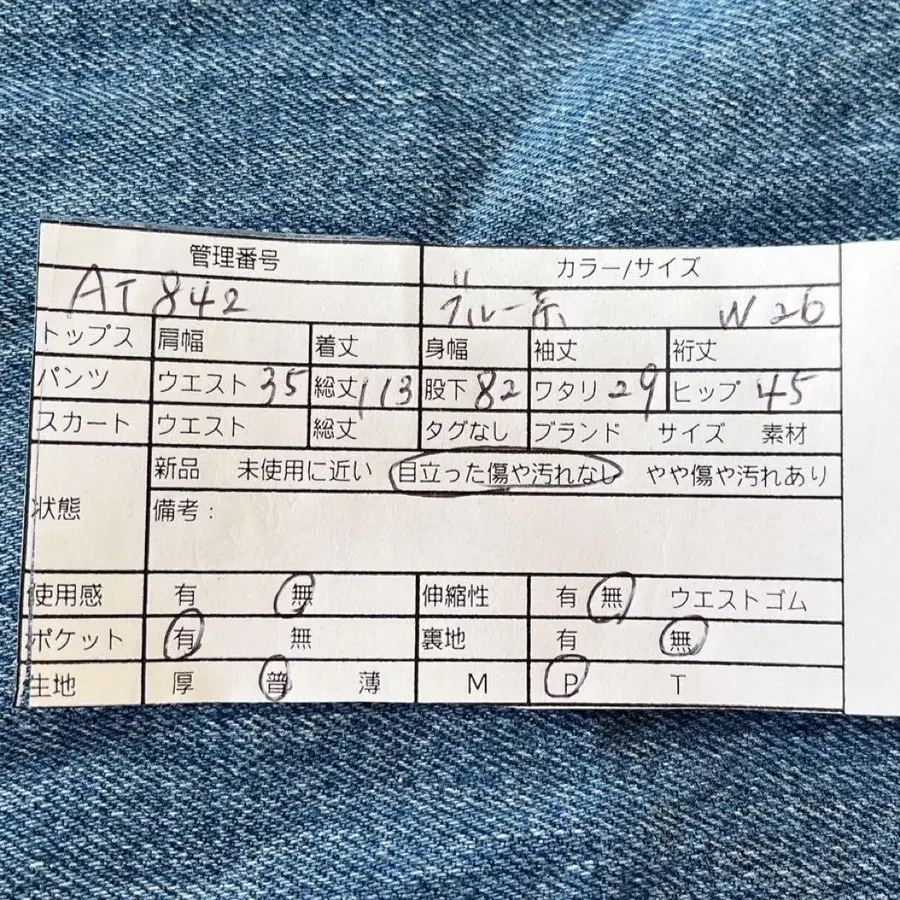 管理番号 カラー/サイズ
AT842 ブルー系 W26
トップス 肩幅 着丈 身幅 袖丈 裄丈
パンツ ウエスト 35 総丈 113 股下 82 ワタリ 29 ヒップ 45
スカート ウエスト 総丈 タグなし ブランド サイズ 素材
状態 新品 未使用に近い 目立った傷や汚れなし やや傷や汚れあり
備考:
使用感 有 無 伸縮性 有 無 ウエストゴム
ポケット 有 無 裏地 有 無
生地 厚 普 薄 M P T